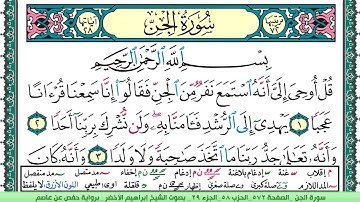 سُورَةُ الْجِنِّ
بِسْمِ اللَّهِ الرَّحْمَٰنِ الرَّحِيمِ
قُلْ أُوحِيَ إِلَيَّ أَنَّهُ اسْتَمَعَ نَفَرٌ مِّنَ الْجِنِّ فَقَالُوا إِنَّا سَمِعْنَا قُرْءَانًا
عَجَبًا ١ يَهْدِي إِلَى الرُّشْدِ فَـَٔامَنَّا بِهِ وَلَن نُّشْرِكَ بِرَبِّنَا أَحَدًا ٢
وَأَنَّهُ تَعَٰلَىٰ جَدُّ رَبِّنَا مَا اتَّخَذَ صَٰحِبَةً وَلَا وَلَدًا ٣ وَأَنَّهُ كَانَ
سورة الجن الصفحة ٥٧٢ الحزب ٥٨ الجزء ٢٩ بصوت الشيخ ابراهيم الأخضر برواية حفص عن عاصم